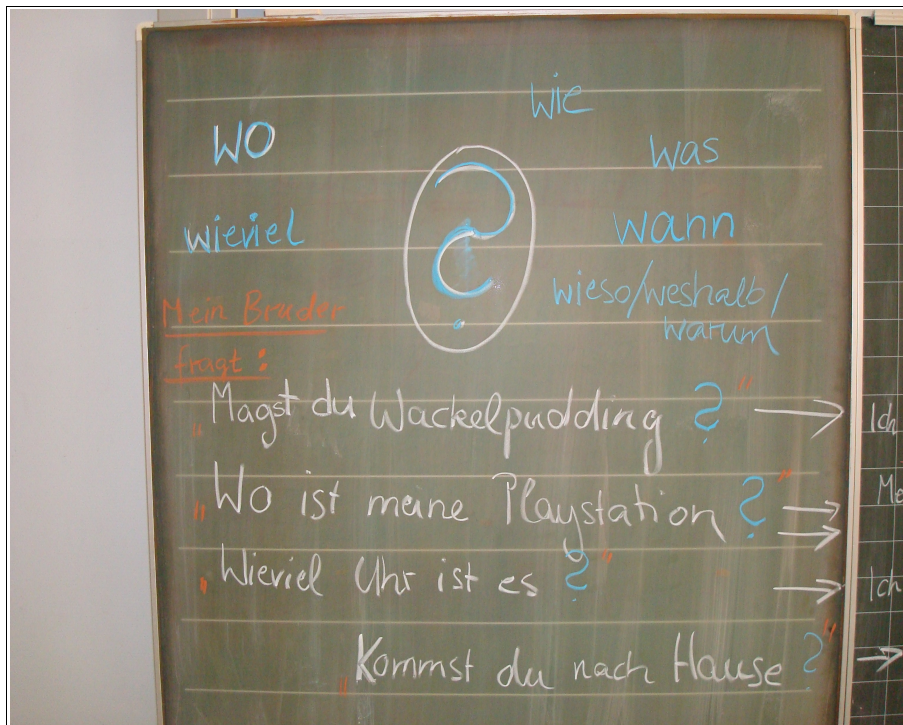 wie
wo
was
?
wieviel
wann
wieso/weshalb/
warum
Mein Bruder
fragt:
„Magst du Wackelpudding?" → Ich
„Wo ist meine Playstation?" → Me
„Wieviel Uhr ist es?" → Ich
„Kommst du nach Hause?" →